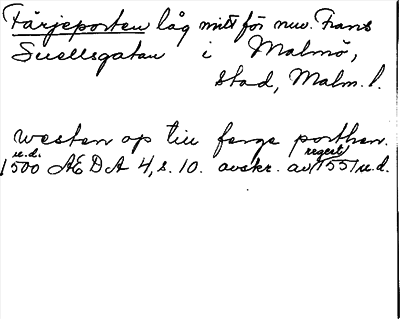 Färjeporten låg mitt för nuv. Frans
Suellsgatan i Malmö,
stad, Malm. l.
westen op till ferge porthen.
u.d.
1500 AEDA 4, s. 10. avskr. av regest 1551 u.d.